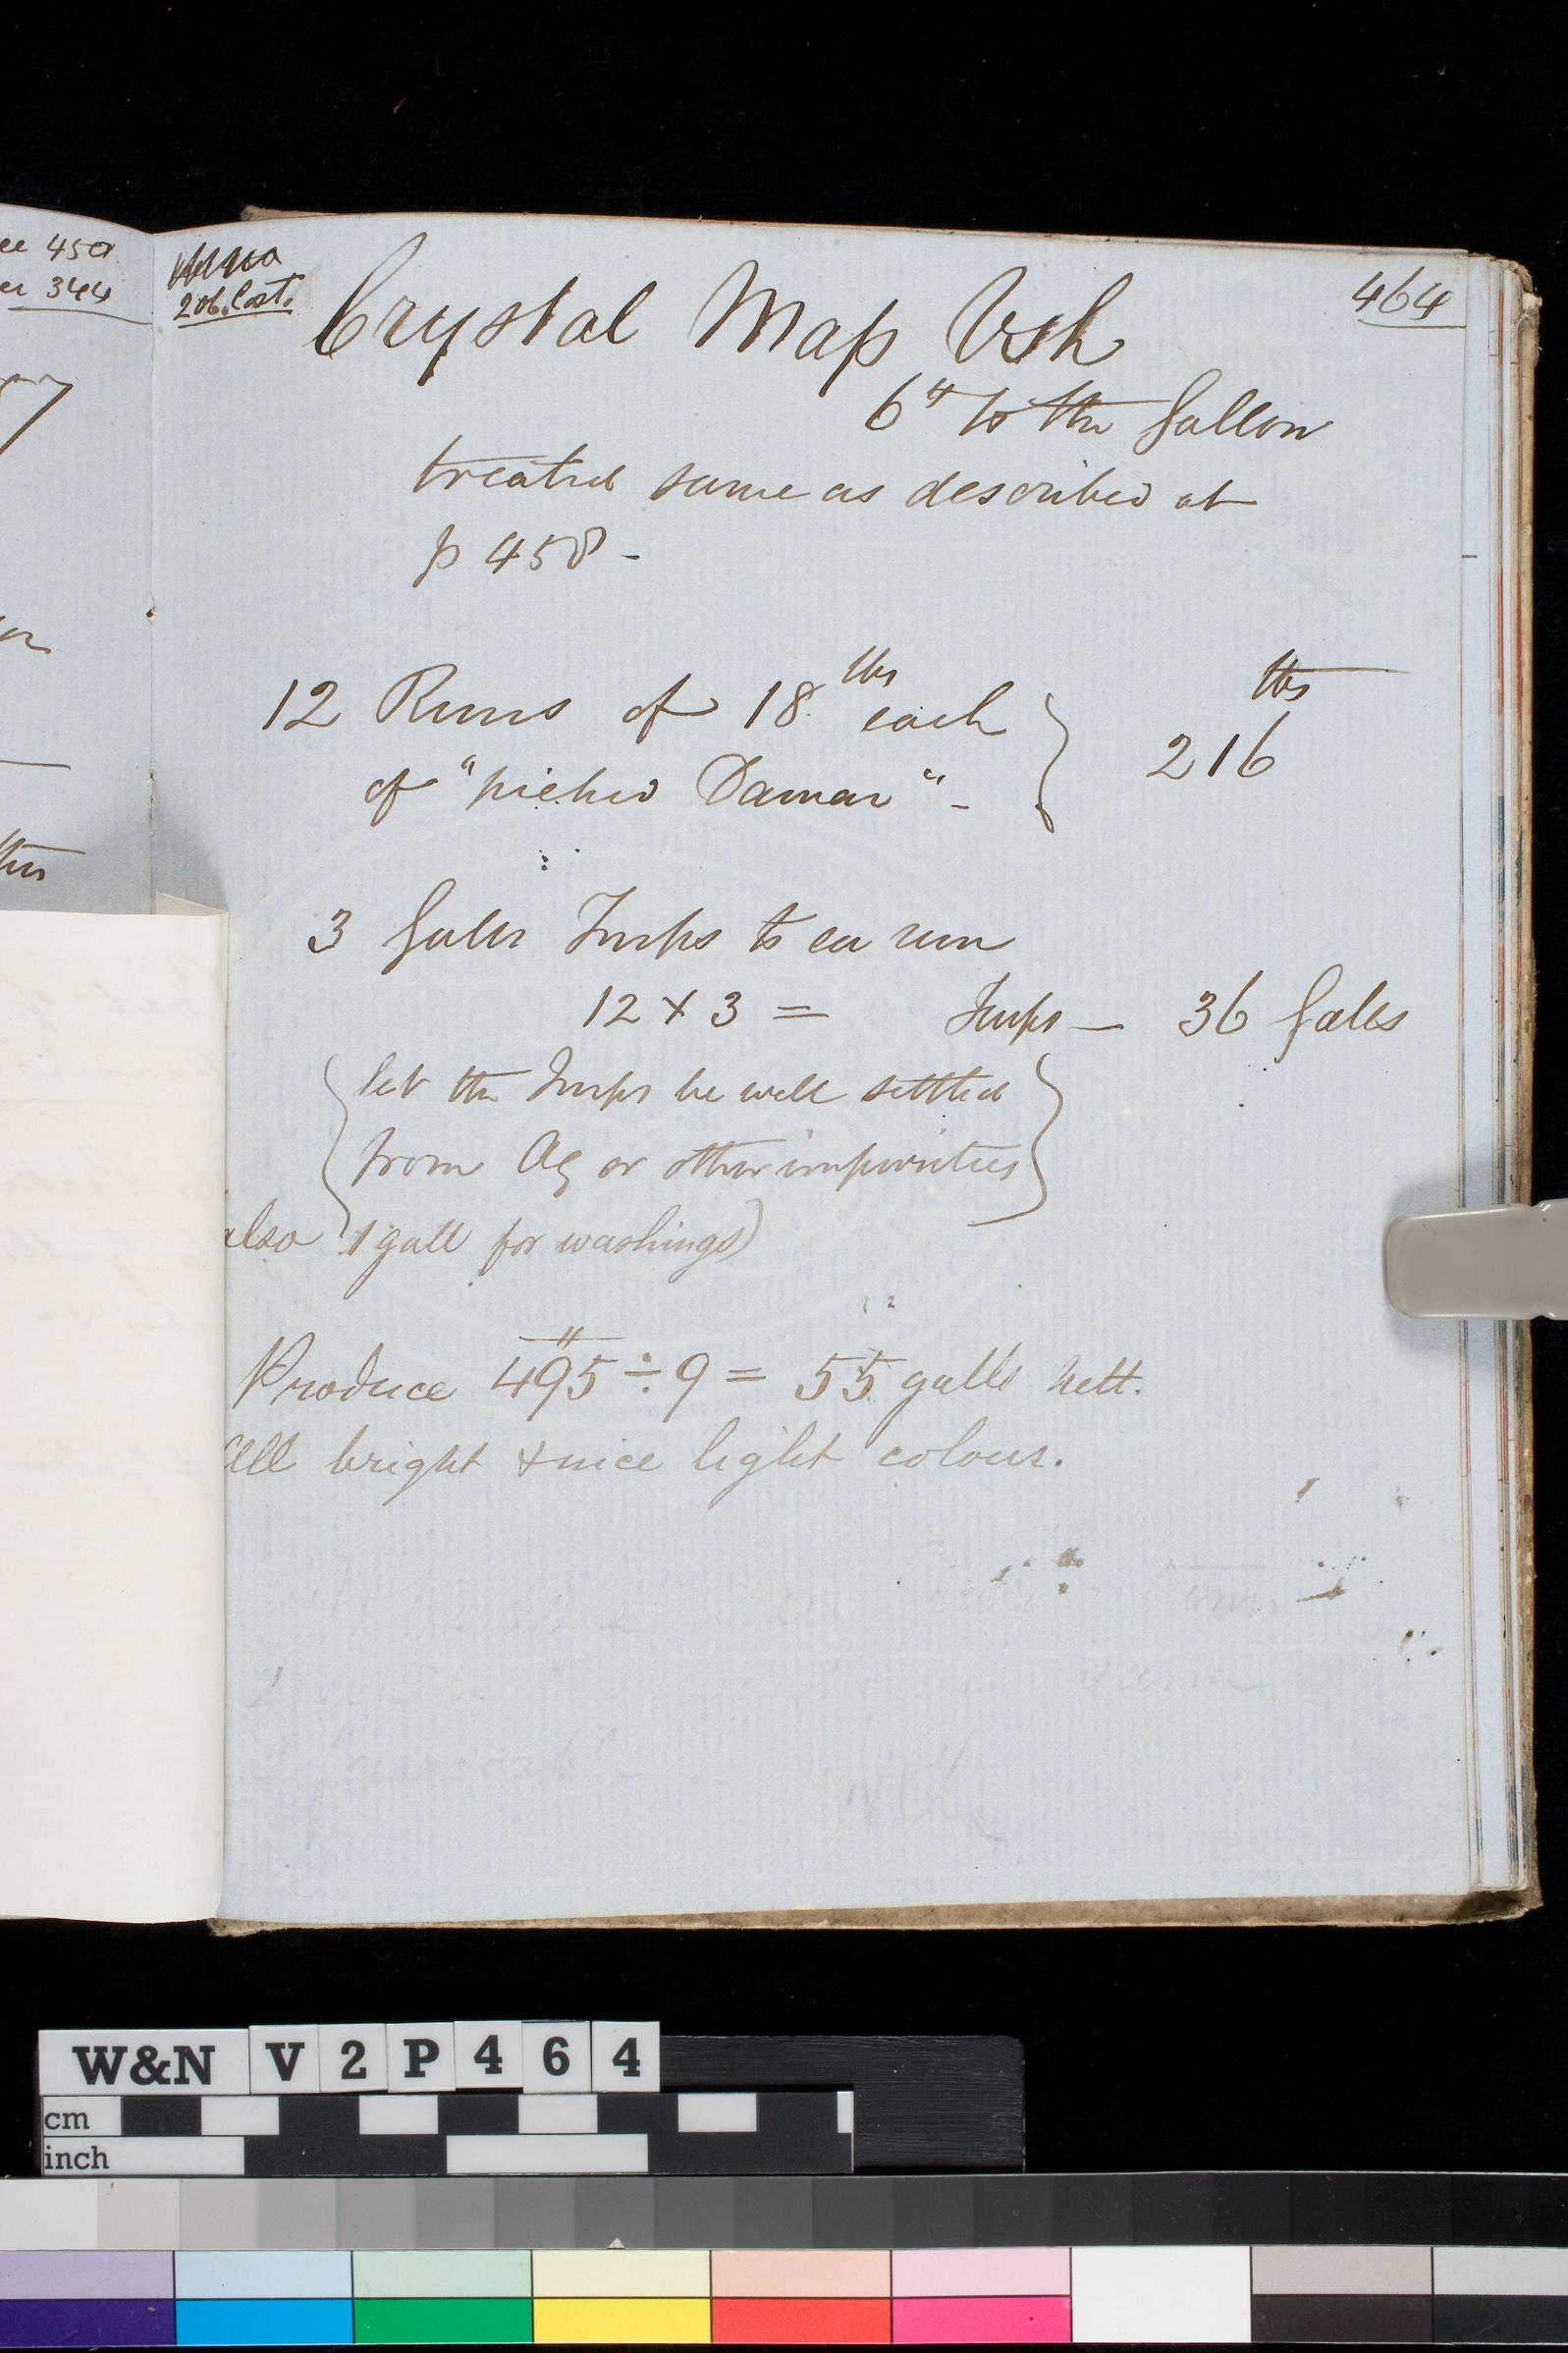 464
206. Cost.
Crystal Map Vsh
6" to the Gallon
treated same as described at
p 458 -
12 Runs of 18 lbs each
of "picked Damar" -
lbs
216
3 Galls Turps to ea run
12 x 3 = Turps — 36 Galls
let the Turps be well settled
from Aq or other impurities
also 1 gall for washings)
Produce 495 ÷ 9 = 55 galls nett.
All bright & nice light colour.
344
W&N V2P464
cm
inch